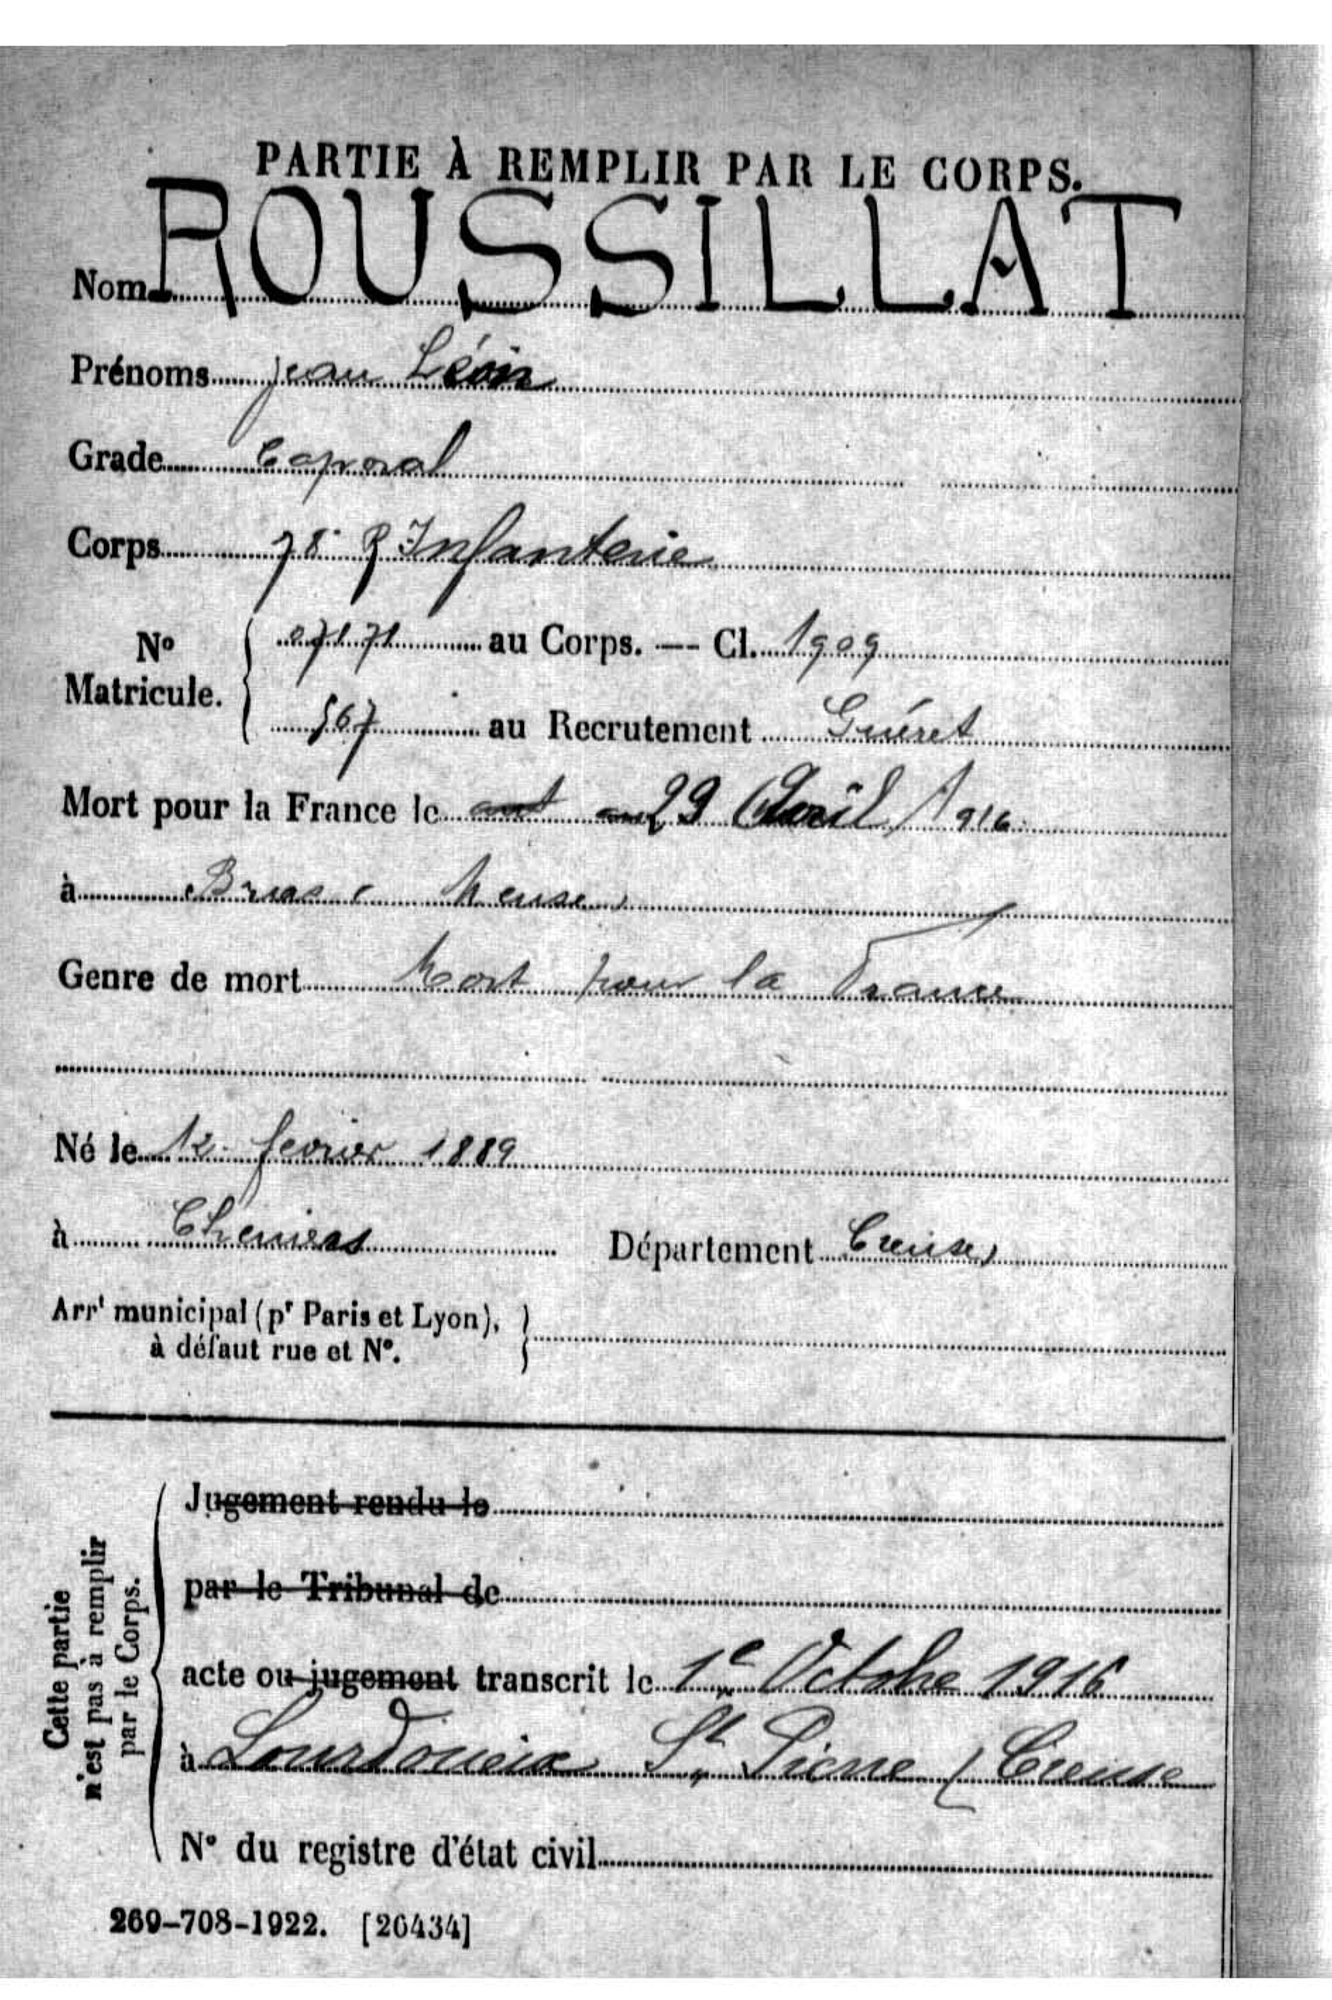 PARTIE À REMPLIR PAR LE CORPS.
Nom ROUSSILLAT
Prénoms Jean Léon
Grade Caporal
Corps 78e R Infanterie
No Matricule. au Corps. — Cl. 1909
567 au Recrutement Guéret
Mort pour la France le 29 Avril 1916
à Meuse
Genre de mort Mort pour la France
Né le 12 fevrier 1889
à Cheniers Département Creuse
Arrt municipal (pr Paris et Lyon),
à défaut rue et No.
Cette partie
n'est pas à remplir
par le Corps.
Jugement rendu le
par le Tribunal de
acte ou jugement transcrit le 1e Octobre 1916
à Lourdoueix St Pierre (Creuse
No du registre d'état civil
269-708-1922. [26434]